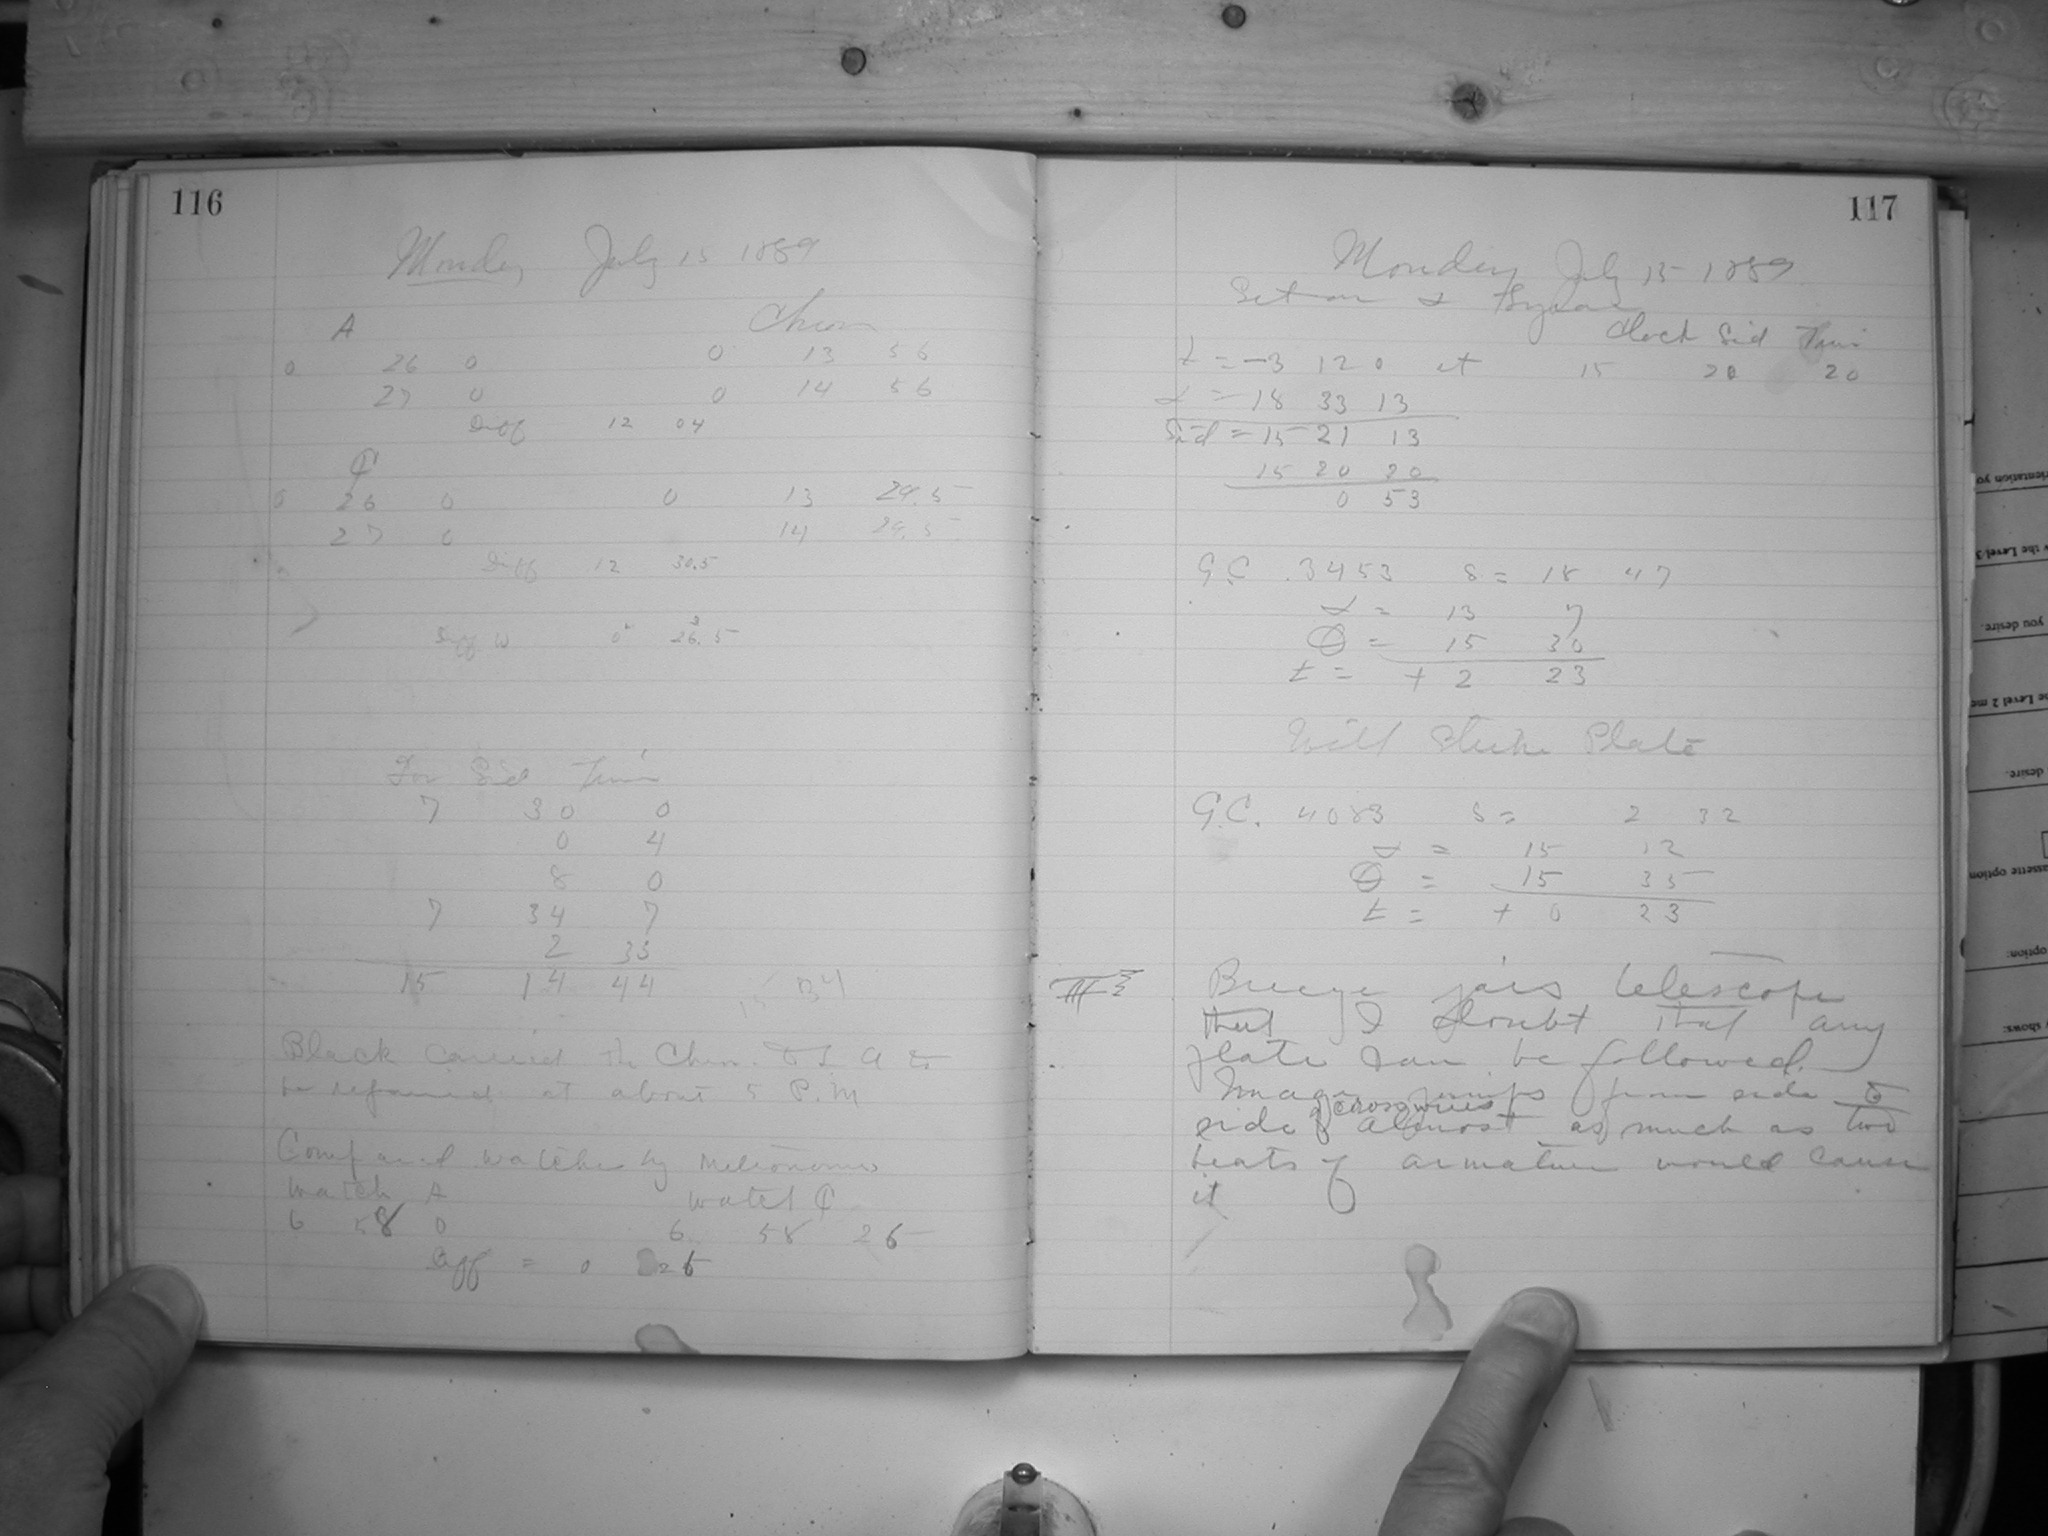 116
Monday July 15 1889
A Chron
0 26 0 0 13 56
27 0 0 14 56
Diff 12 04
₵
0 26 0 0 13 29.5
27 0 14 29.5
Diff 12 30.5
Diff 0 26.5
For Sid Time
7 30 0
0 4
8 0
7 34 7
2 35
15 14 44
Black carried the Chron. to L A to
be repaired at about 5 P.M
Compared watches by Metronome
Watch A Watch ₵
6 58 0 6 58 26
Diff = 0 26
117
Monday July 15 1889
Set on α
Clock Sid Time
t = -3 12 0 at 15 20 20
α = 18 33 13
Sid = 15 21 13
15 20 20
0 53
G.C. 3453 δ = 18 47
α = 13 7
θ = 15 30
t = + 2 23
Will Plate
G.C. 4083 δ = 2 32
α = 15 12
θ = 15 35
t = + 0 23
Breeze jars telescope
that I doubt that any
plate can be followed.
Image jumps from side to
side of crosswires almost as much as two
beats of armature would cause
it
rientation yo
y the Level 3
you desire.
he Level 2 me
desire.
assette option
option:
y shows: